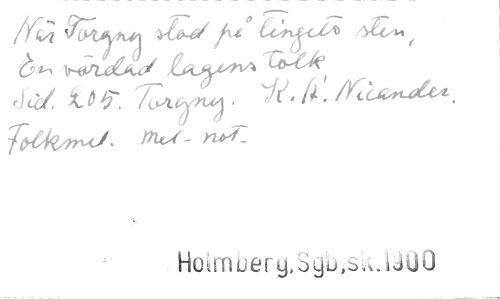 När Torgny stod på tingets sten,
En vördad lagens tolk
Sid. 205. Torgny. K. A. Nicander.
Folkmel. mel-not-
Holmberg,Sgb,sk.1900